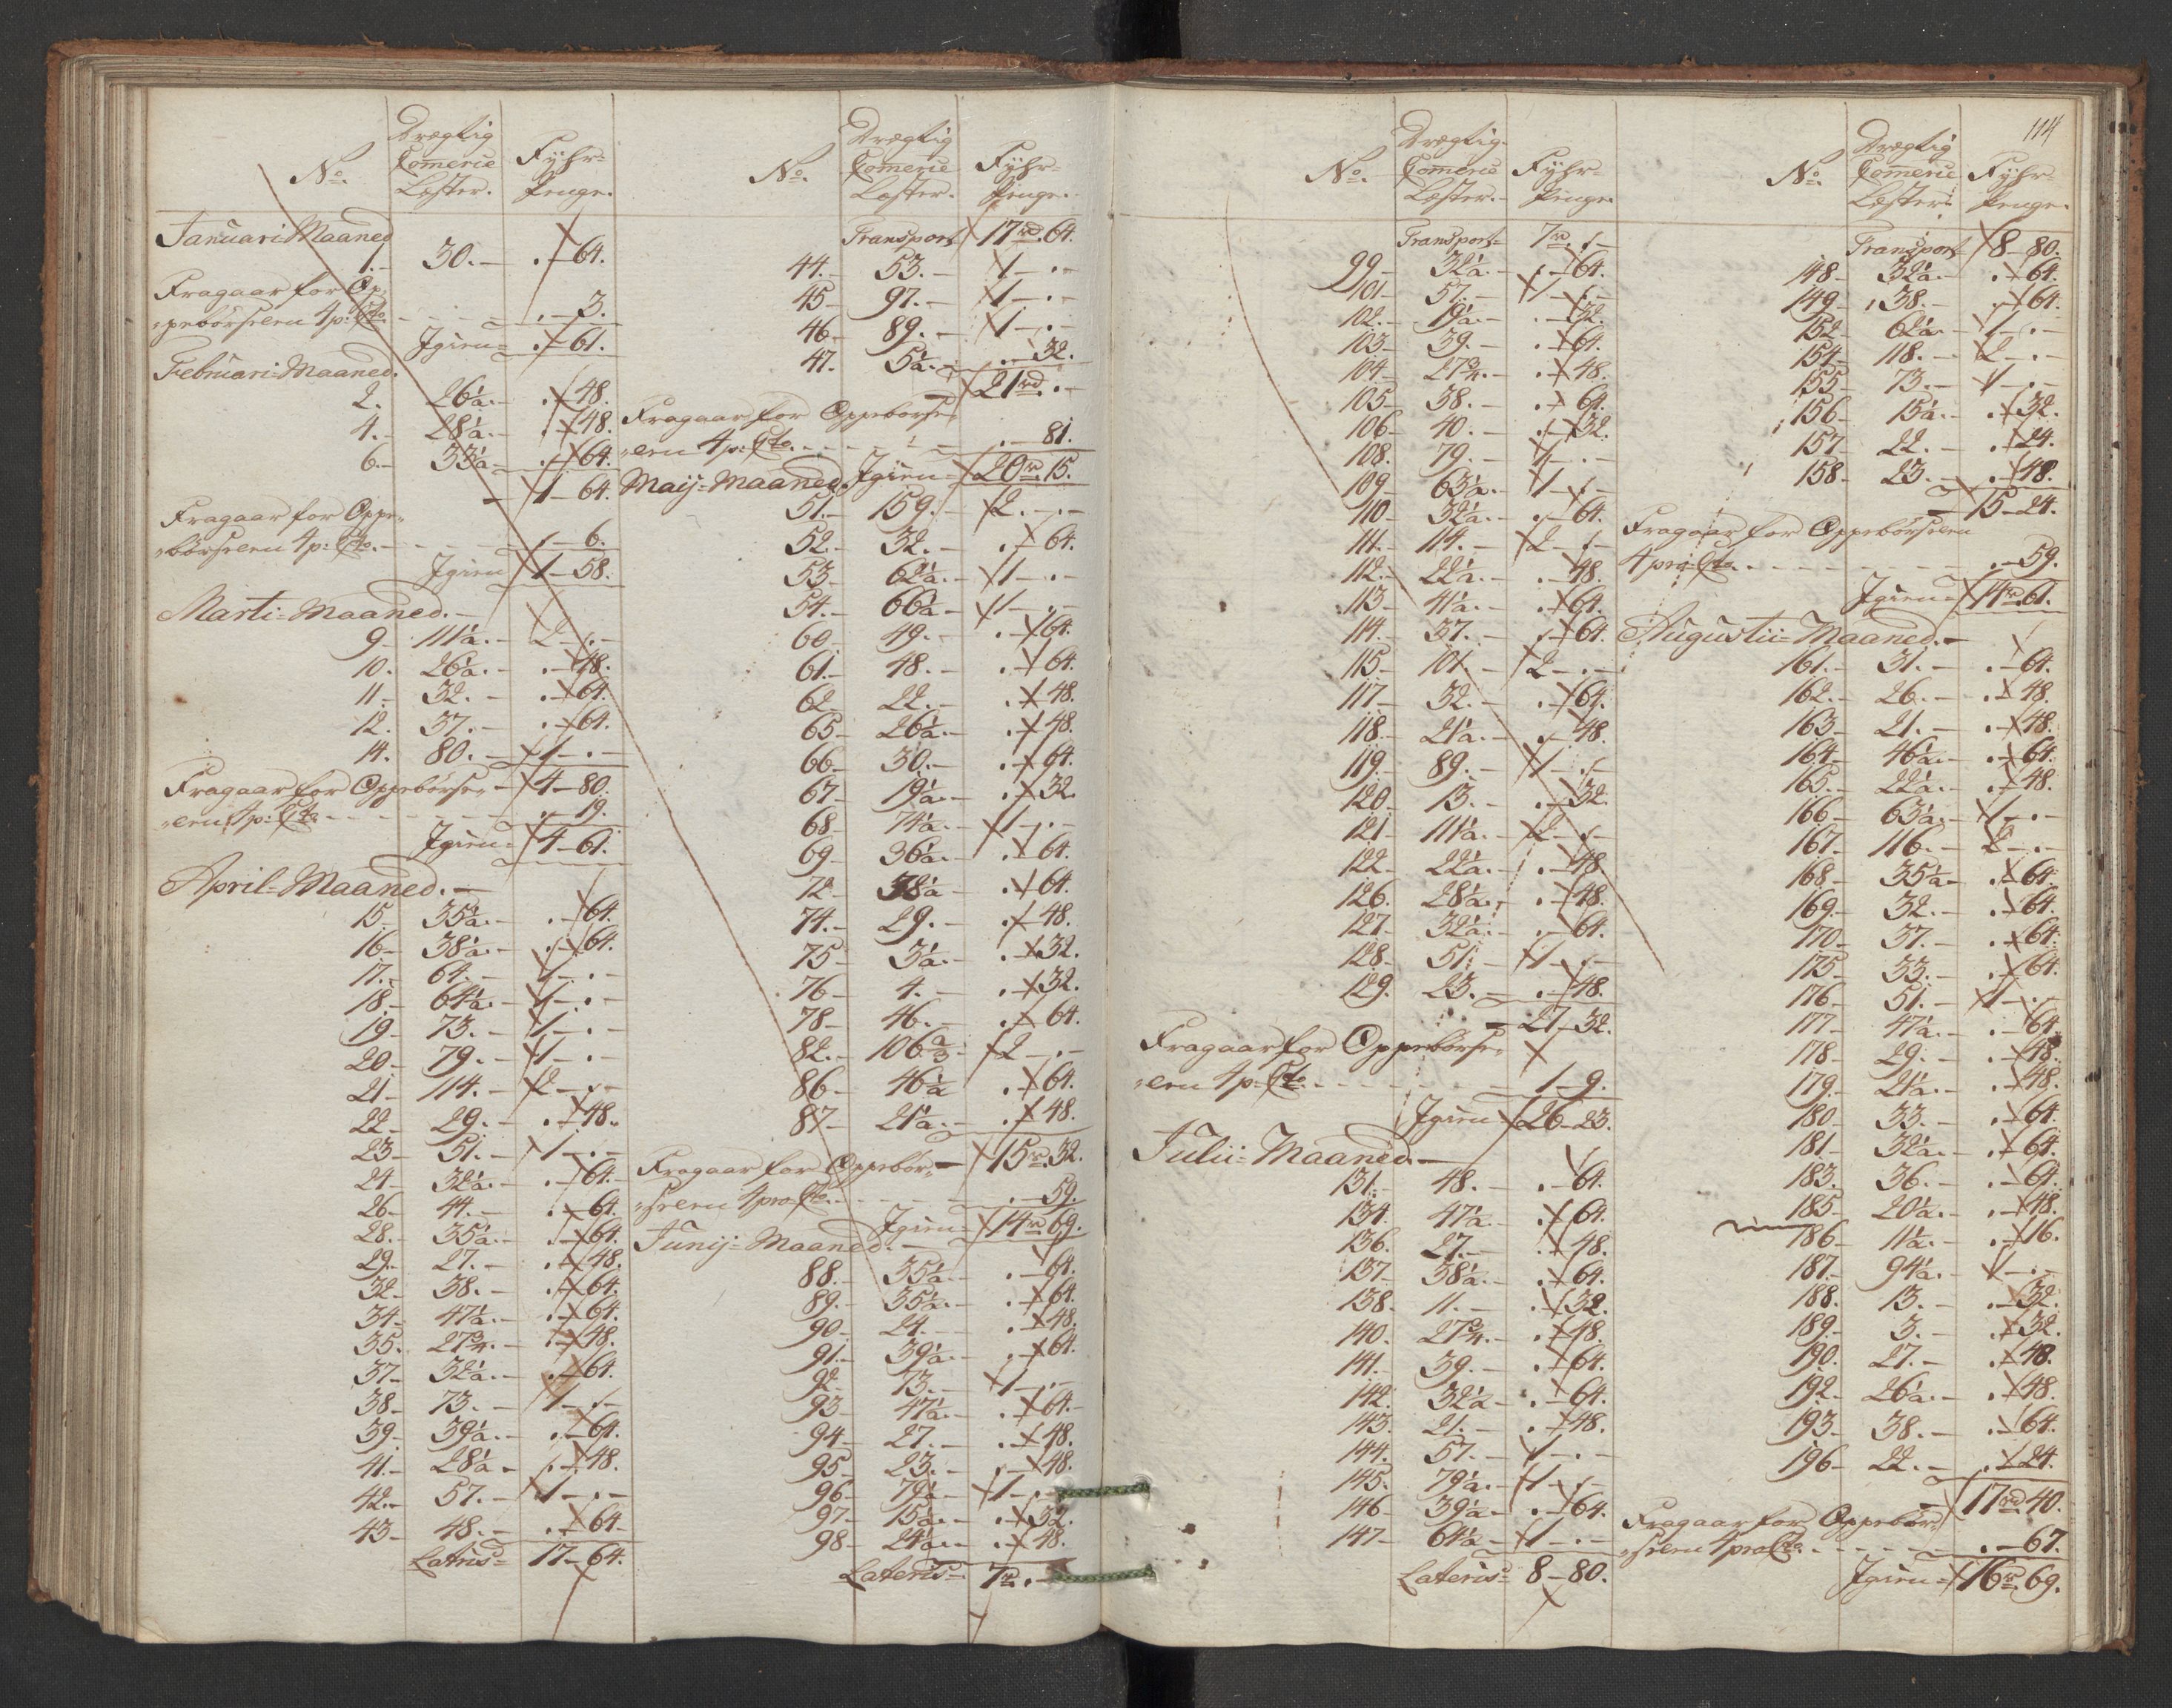 No.
Drægtig
Comerce
Læster.
Fyhr=
Penge.
Januari Maaned
1. 30. . 64.
Fragaar for Op=
pebørselen 4 p: Cto. . 3.
Igien . 61.
Februari=Maaned.
2. 26½. . 48.
4. 28½. . 48.
6. 33½ . 64.
1 64.
Fragaar for Oppe=
børselen 4 p: Cto. . 6.
Igien 1 58.
Marti=Maaned.
9 111½. 2 .
10. 26½. . 48.
11 32. . 64.
12. 37. . 64.
14. 80. 1 .
Fragaar for Oppebørse= 4 80.
len 4 p: Cto. . 19.
Igien 4 61.
April=Maaned.
15 35½. . 64.
16 38½. . 64.
17. 64. 1 .
18. 64½. 1 .
19 73. 1 .
20 79. 1 .
21 114. 2 .
22 29. . 48.
23 51. 1 .
24 32½. . 64.
26 44. . 64.
28. 35½. . 64.
29. 27. . 48.
32 38. . 64.
34 47½. . 64.
35. 27¾. . 48.
37 32½. . 64.
38 73. 1 .
39 39½. . 64.
41. 28½ . 48.
42. 57. 1 .
43 48. . 64
Laterus 17 64.
No.
Drægtig
Comerce
Læster.
Fyhr=
Penge.
Transport 17 rd. 64.
44. 53. 1 .
45 97. 1 .
46 89. 1 .
47. 5½. . 32.
21 rd. .
Fragaar for Oppebørse=
len 4 p: Cto. . 81.
Maij=Maaned. Igien 20 rd. 15.
51. 159. 2 .
52. 32. . 64.
53 62½. 1 .
54. 66½ 1 .
60 49. . 64.
61. 48. . 64.
62 22. . 48.
65 26½. . 48.
66 30. . 64.
67 19½. . 32.
68 74½. 1 .
69 36½. . 64.
72 38½ . 64.
74. 29. . 48.
75 3½. . 32.
76 4. . 32.
78 46. . 64.
82. 106⅔ 2 .
86 46½ . 64.
87 21½. . 48.
Fragaar for Oppebør= 15 rd. 32.
selen 4 pro Cto. . 59.
Igien 14 rd. 69.
Junij=Maaned.
88. 35½. . 64.
89. 35½. . 64.
90 24. . 48.
91. 39½. . 64.
92 73. 1 .
93 47½. . 64.
94 27. . 48.
95 23. . 48.
96 79½ 1 .
97 15½. . 32.
98 24½. . 48.
Laterus 7 rd. .
114
No.
Drægtig.
Comerce
Læster.
Fyhr=
Penge.
Transport 7 rd. .
99 32½. . 64.
101 57. 1 .
102. 19½. . 32.
103 39. . 64.
104 27¾. . 48.
105 38. . 64.
106 40. . 32.
108. 79. 1 .
109 63½. 1 .
110 32½. . 64.
111. 114. 2 .
112. 22½. . 48.
113 41½. . 64.
114. 37. . 64.
115 101. 2 .
117 32. . 64.
118. 21½. . 48.
119. 89. 1 .
120 13. . 32.
121 111½. 2 .
122 22½. . 48.
126. 28½. . 48.
127 32½. . 64.
128 51. 1 .
129. 23. . 48.
27 32.
Fragaar for Oppebørse=
len 4 p: Cto. 1 9.
Igien 26 23.
Julii=Maaned.
131. 48. . 64.
134. 47½. . 64.
136. 27. . 48.
137 38½. . 64.
138. 11. . 32.
140. 27¾. . 48.
141. 39. . 64.
142. 32½ . 64.
143. 21. . 48.
144. 57. 1 .
145. 79½. 1 .
146 39½ . 64.
147 64½ 1 .
Laterus 8 80.
No.
Drægtig
Comerce
Læster.
Fyhr=
Penge.
Transport 8 80.
148 32½. . 64.
149 38. . 64.
152 62½. 1 .
154 118. 2 .
155 73. 1 .
156 15½. . 32.
157 22. . 24.
158 23. . 48.
15 24.
Fragaar for Oppebørselen
4 pro Cto. . 59.
Igien 14 rd. 61.
Augustii=Maaned.
161. 31. . 64.
162. 26. . 48.
163 21. . 48.
164 46½. . 64.
165. 22½. . 48.
166 63½. 1 .
167. 116. 2 .
168 35½. . 64.
169. 32. . 64.
170 37. . 64.
175 33. . 64.
176 51. 1 .
177 47½. . 64.
178 29. . 48.
179. 21½. . 48.
180 33. . 64.
181 32½. . 64.
183. 36. . 64.
185 20½. . 48.
186 11½. . 16.
187. 94½. 1 .
188. 13. . 32.
189 3. . 32.
190. 27. . 48.
192. 26½. . 48.
193 38. . 64.
196 22. . 24.
17 rd. 40.
Fragaar for Oppebør=
selen 4 pro Cto. . 67.
Igien 16 rd. 69.